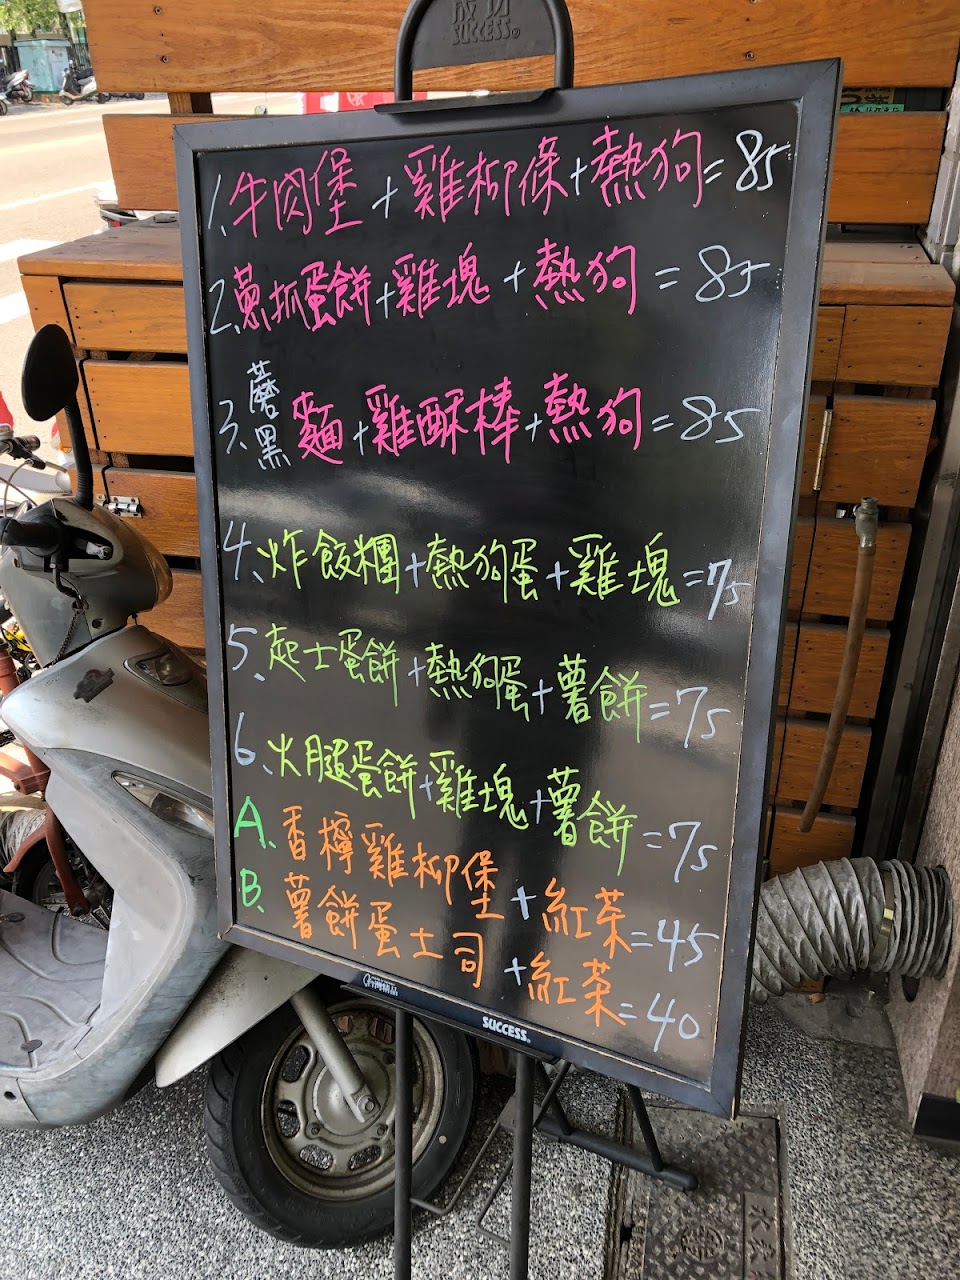 成功
SUCCESS®
1.牛肉堡+雞柳條+熱狗=85
2.蔥抓蛋餅+雞塊+熱狗=85
3.蘑黑麵+雞酥棒+熱狗=85
4.炸飯糰+熱狗蛋+雞塊=75
5.起士蛋餅+熱狗蛋+薯餅=75
6.火腿蛋餅+雞塊+薯餅=75
A.香檸雞柳堡+紅茶=45
B.薯餅蛋土司+紅茶=40
SUCCESS®